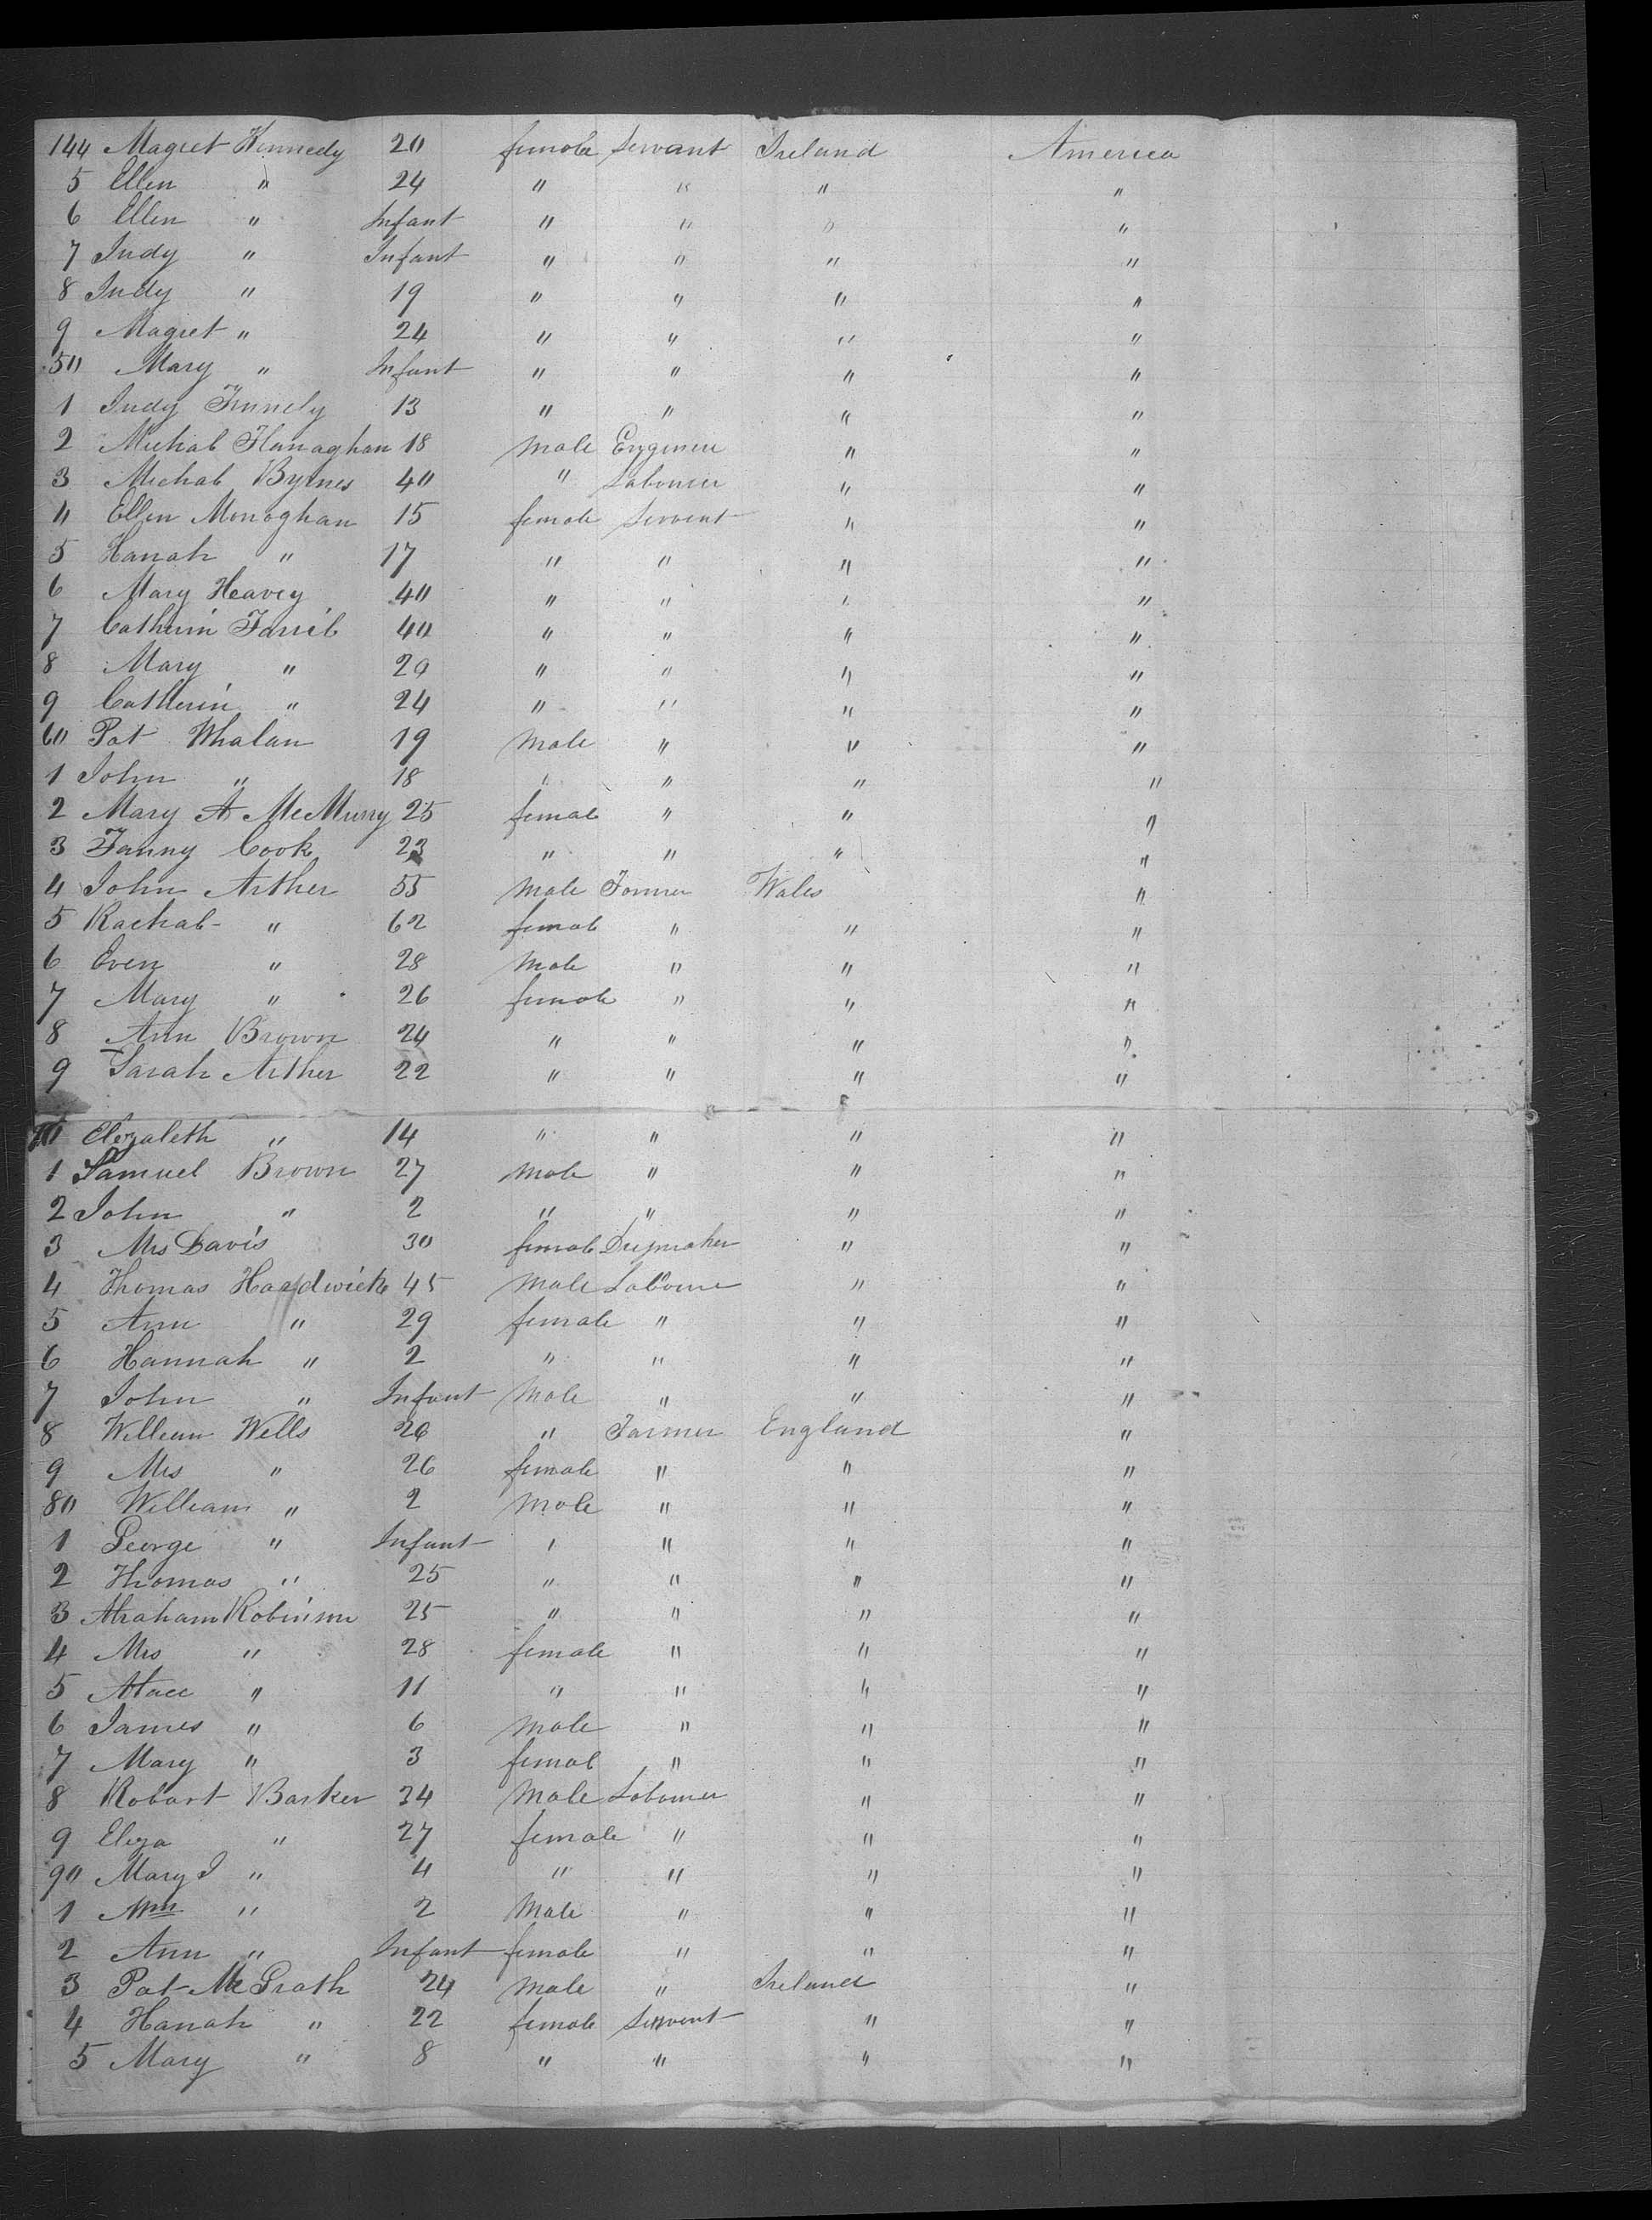 144 Magret Kennedy 20 female Servant Ireland America
5 Ellen " 24 " " " "
6 Ellen " Infant " " " "
7 Judy " Infant " " " "
8 Judy " 19 " " " "
9 Magret " 24 " " " "
50 Mary " Infant " " " "
1 Judy 13 " " " "
2 Michal Flanaghan 18 male Engineer " "
3 Michal Byrnes 40 " Labourer " "
4 Ellen Monaghan 15 female Servent " "
5 Hanah " 17 " " " "
6 Mary Heavey 40 " " " "
7 Catherin 40 " " " "
8 Mary " 20 " " " "
9 Catherin " 24 " " " "
60 Pat Whalan 19 Male " " "
1 John " 18 " " " "
2 Mary A McMurry 25 female " " "
3 Fanny Cook 23 " " " "
4 John Arther 55 Male Farmer Wales "
5 Rachal " 62 female " " "
6 Even " 28 Male " " "
7 Mary " 26 female " " "
8 Ann Brown 24 " " " "
9 Sarah Arther 22 " " " "
70 Elezabeth " 14 " " " "
1 Samuel Brown 27 Male " " "
2 John " 2 " " " "
3 Mrs Davis 30 female " "
4 Thomas Hardwick 45 Male Labourer " "
5 Ann " 29 female " " "
6 Hannah " 2 " " " "
7 John " Infant Male " " "
8 William Wells 26 " Farmer England "
9 Mrs " 26 female " " "
80 William " 2 Male " " "
1 George " Infant " " " "
2 Thomas " 25 " " " "
3 Abraham Robinson 25 " " " "
4 Mrs " 28 female " " "
5 " 11 " " " "
6 James " 6 Male " " "
7 Mary " 3 female " " "
8 Robart Barker 34 Male Labourer " "
9 Eliza " 27 female " " "
90 Mary J " 4 " " " "
1 Wm " 2 Male " " "
2 Ann " Infant female " " "
3 Pat McGrath 24 Male " Ireland "
4 Hanah " 22 female Servent " "
5 Mary " 8 " " " "